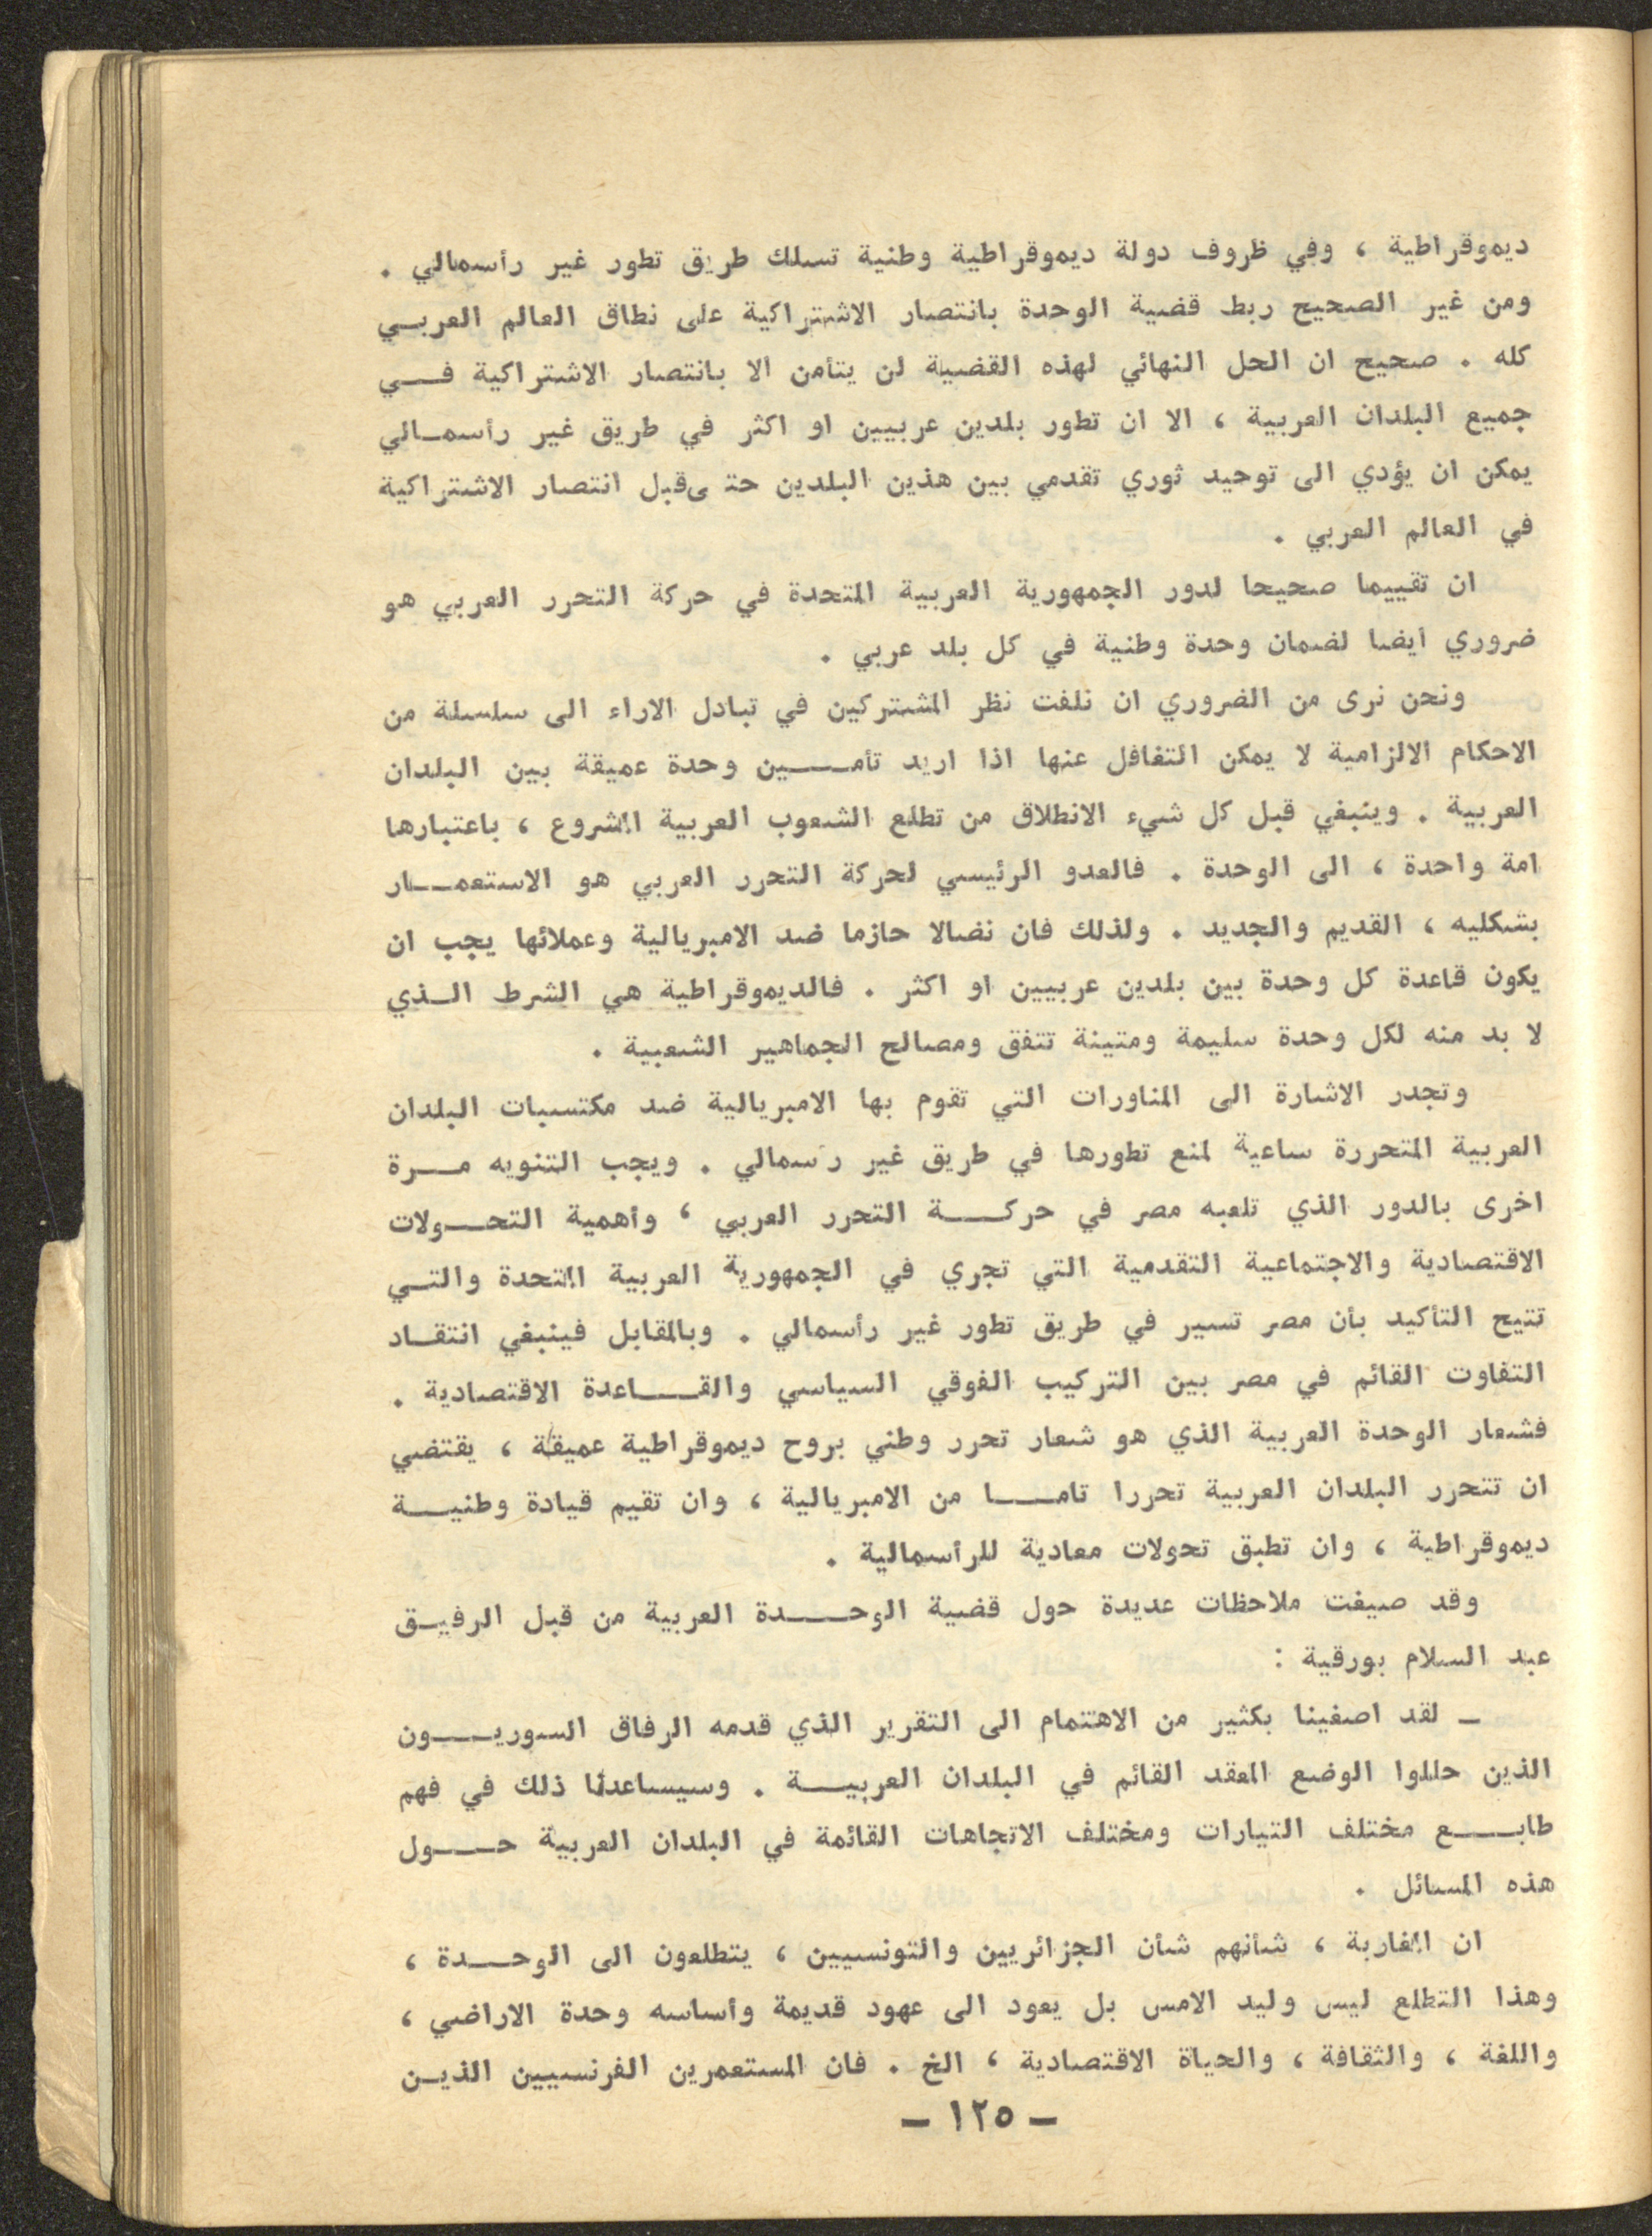 ديموقراطية ، وفي ظروف دولة ديموقراطية وطنية تسلك طريق تطور غير رأسمالي .
ومن غير الصحيح ربط قضية الوحدة بانتصار الاشتراكية على نطاق العالم العربـي
كله . صحيح ان الحل النهائي لهذه القضية لن يتأمن الا بانتصار الاشتراكية فـــي
جميع البلدان العربية ، الا ان تطور بلدين عربيين او اكثر في طريق غير رأسمـالي
يمكن ان يؤدي الى توحيد ثوري تقدمي بين هذين البلدين حتـ ىقبل انتصار الاشتراكية
في العالم العربي .
ان تقييما صحيحا لدور الجمهورية العربية المتحدة في حركة التحرر العربي هو
ضروري أيضا لضمان وحدة وطنية في كل بلد عربي .
ونحن نرى من الضروري ان نلفت نظر المشتركين في تبادل الاراء الى سلسلة من
الاحكام الالزامية لا يمكن التغافل عنها اذا اريد تأمــــين وحدة عميقة بين البلدان
العربية . وينبغي قبل كل شيء الانطلاق من تطلع الشعوب العربية المشروع ، باعتبارها
امة واحدة ، الى الوحدة . فالعدو الرئيسي لحركة التحرر العربي هو الاستعمـــار
بشكليه ، القديم والجديد . ولذلك فان نضالا حازما ضد الامبريالية وعملائها يجب ان
يكون قاعدة كل وحدة بين بلدين عربيين او اكثر . فالديموقراطية هي الشرط الـذي
لا بد منه لكل وحدة سليمة ومتينة تتفق ومصالح الجماهير الشعبية .
وتجدر الاشارة الى المناورات التي تقوم بها الامبريالية ضد مكتسبات البلدان
العربية المتحررة ساعية لمنع تطورها في طريق غير رسمالي . ويجب التنويه مـــرة
اخرى بالدور الذي تلعبه مصر في حركـــة التحرر العربي ، وأهمية التحــولات
الاقتصادية والاجتماعية التقدمية التي تجري في الجمهورية العربية المتحدة والتـي
تتيح التأكيد بأن مصر تسير في طريق تطور غير رأسمالي . وبالمقابل فينبغي انتقـاد
التفاوت القائم في مصر بين التركيب الفوقي السياسي والقــــاعدة الاقتصادية .
فشعار الوحدة العربية الذي هو شعار تحرر وطني بروح ديموقراطية عميقة ، يقتضي
ان تتحرر البلدان العربية تحررا تامــــا من الامبريالية ، وان تقيم قيادة وطنيـــة
ديموقراطية ، وان تطبق تحولات معادية للرأسمالية .
وقد صيغت ملاحظات عديدة حول قضية الوحــــدة العربية من قبل الرفيـق
عبد السلام بورقية :
ـ لقد اصغينا بكثير من الاهتمام الى التقرير الذي قدمه الرفاق السوريــــون
الذين حللوا الوضع المعقد القائم في البلدان العربيـــة . وسيساعدنا ذلك في فهم
طابــــع مختلف التيارات ومختلف الاتجاهات القائمة في البلدان العربية حــــول
هذه المسائل .
ان المغاربة ، شأنهم شأن الجزائريين والتونسيين ، يتطلعون الى الوحـــدة ،
وهذا التطلع ليس وليد الامس بل يعود الى عهود قديمة وأساسه وحدة الاراضي ،
واللغة ، والثقافة ، والحياة الاقتصادية ، الخ . فان المستعمرين الفرنسيين الذيـن
ـ ١٢٥ ـ